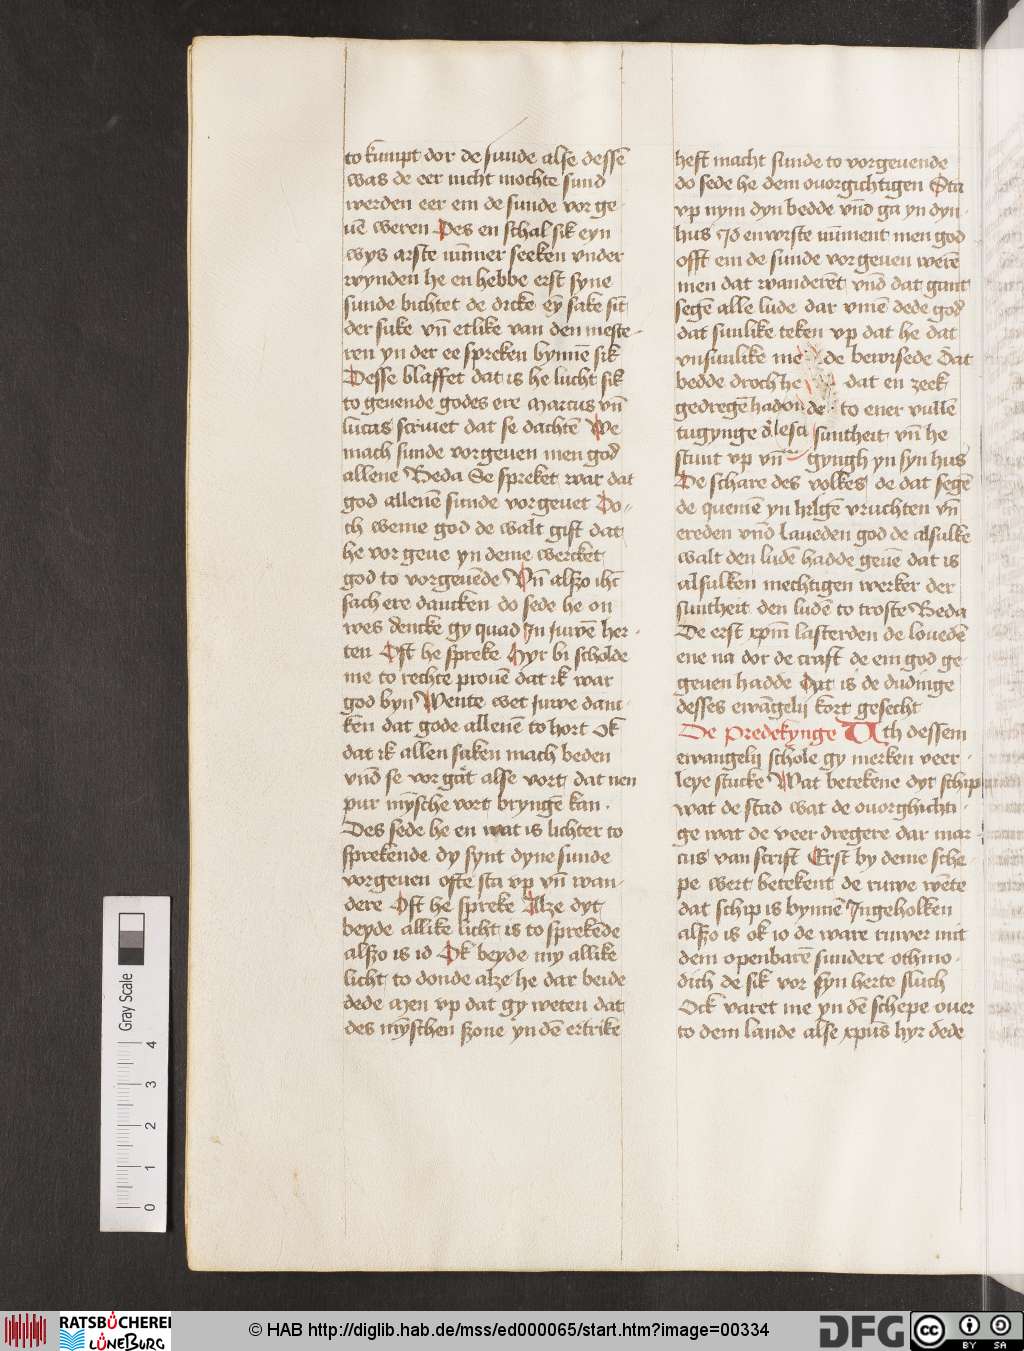 to kumpt dor de sunde alse dessē
was de eer nicht mochte sund
werden eer em de sunde vor ge
uē weren Des en schal sik eyn
wys arste nūmer seeken vnder
wynden he en hebbe erst syne
sunde bichtet de dicke eȳ sake sīt
der suke vn̄ etlike van den meste-
ren yn der ee spreken bynnē sik
Desse blasset dat is he lucht sik
to geuende godes ere Marcus vn̄
lucas scriuet dat se dachtē We
mach sunde vorgeuen men god
allene Beda Se spreket war dat
god allenē sunde vorgeuet Do-
ch weme god de walt gift dat
he vor geue yn deme wercket
god to vorgeuēde Vn̄ alszo ihc̄
sach ere dancken do sede he on
wes dencke gy quad In juwē her-
ten Oft he spreke Hyr bi scholde
me to rechte prouē dat ik war
god byn Wente wet juwe dan-
kēn dat gode allenē to hort Ok
dat ik allen saken mach beden
vn̄d se vor gāt alse vort dat nen
pur mȳsche vort bryngē kan.
Des sede he en wat is lichter to
sprekende dy synt dyne sunde
vorgeuen ofte sta vp vn̄ wan-
dere Oft he spreke Alze dyt
beyde allike licht is to sprekēde
alszo is id Ok beyde my allike
licht to donde alze he dar beide
dede Men vp dat gy weten dat
des mȳschen szone yn dē ertrike
heft macht sunde to vorgeuende
do sede he dem ouorgichtigen Sta
vp nym dyn bedde vn̄d ga yn dyn-
hus Id en worste nūment men god
offt em de sunde vorgeuen werē
men dat wanderēt vn̄d dat gunt
segē alle lude dar vmē dede god
dat sunlike teken vp dat he dat
vnsunlike me de bewisede Dat
bedde droch he dat en zeek
gedregē hadon de to ener vullē
tugynge d' lesci suntheit vn̄ he
stunt vp vn̄ gyngh yn syn hus
De schare des volkes de dat segē
de quemē yn hrlgē vruchten vn̄
ereden vn̄d laueden god de alsulke
walt den ludē hadde geuē dat is
alsulken mechtigen werker der
suntheit den ludē to troste Beda
De erst xpm̄ lasterden de louedē
ene na dor de craft de em god ge-
geuen hadde Dyt is de dudinge
desses ewāgelij kort gesecht
De predekynge Uth dessem
ewangelij schole gy merken veer-
leye stucke Wat betekene dyt schip
wat de stad wat de ouorghichti-
ge wat de veer dregere dar mar-
cus van scrift Erst by deme sche-
pe wert betekent de ruwe wēte
dat schip is bynnē Ingeholken
alszo is ok jo de ware ruwer mit
dem openbarē sundere othmo-
dich de sik vor syn herte sluch
Ock varet me yn dē schepe ouer
to dem lande alse xpūs hyr dede
Gray Scale
4
3
2
1
0
RATSBÜCHEREI
LÜNEBURG
© HAB http://diglib.hab.de/mss/ed000065/start.htm?image=00334
DFG
cc
BY
SA